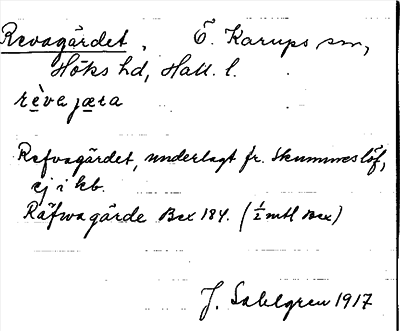 Revagärdet, Ö. Karups sn,
Höks hd, Hall. l.
rèvajæra
Refvagärdet, underlagt fr. Skummeslöf,
ej i kb.
Räfwagärde Bex 184. (½ mtl Bex)
J. Sahlgren 1917